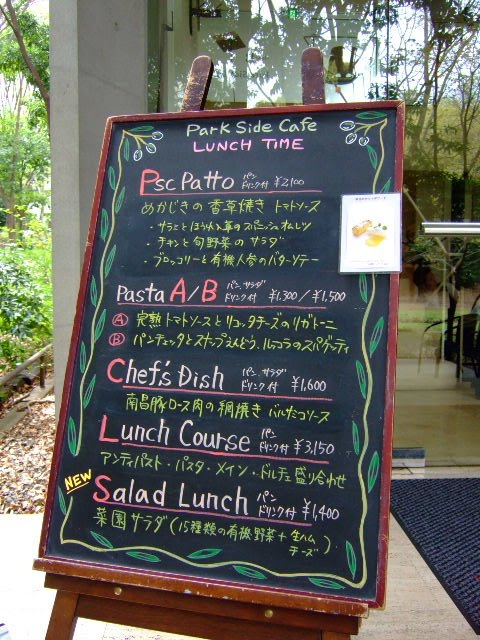 Park Side Cafe
LUNCH TIME
Psc Patto パン ドリンク付 ¥2,100
めかじきの香草焼き トマトソース
・サラミとほうれん草のスパニッシュオムレツ
・チキンと旬野菜のサラダ
・ブロッコリーと有機人参のバターソテー
Pasta A/B パン、サラダ ドリンク付 ¥1,300/¥1,500
Ⓐ 完熟トマトソースとリコッタチーズのリガトーニ
Ⓑ パンチェッタとスナップえんどう、ルッコラのスパゲッティ
Chef's Dish パン、サラダ ドリンク付 ¥1,600
豚ロース肉の網焼き バルサミコソース
Lunch Course パン ドリンク付 ¥3,150
アンティパスト・パスタ・メイン・ドルチェ盛り合わせ
NEW
Salad Lunch パン ドリンク付 ¥1,400
菜園サラダ(15種類の有機野菜+生ハム チーズ)